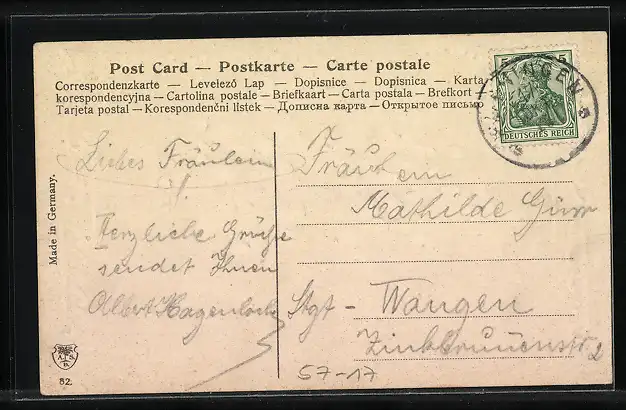 Post Card — Postkarte — Carte postale
Correspondenzkarte — Levelező Lap — Dopisnice — Dopisnica — Karta
korespondencyjna — Cartolina postale — Briefkaart — Carta postala — Brefkort —
Tarjeta postal — Korespondenční lístek — Дописна карта — Открытое письмо
5
DEUTSCHES REICH
Made in Germany.
Liebes Fräulein
!
Herzliche Grüße
sendet Ihnen
Albert Hagenloch
Fräulein
Mathilde
Stgt - Wangen
2
57-17
A. S.
B.
52.